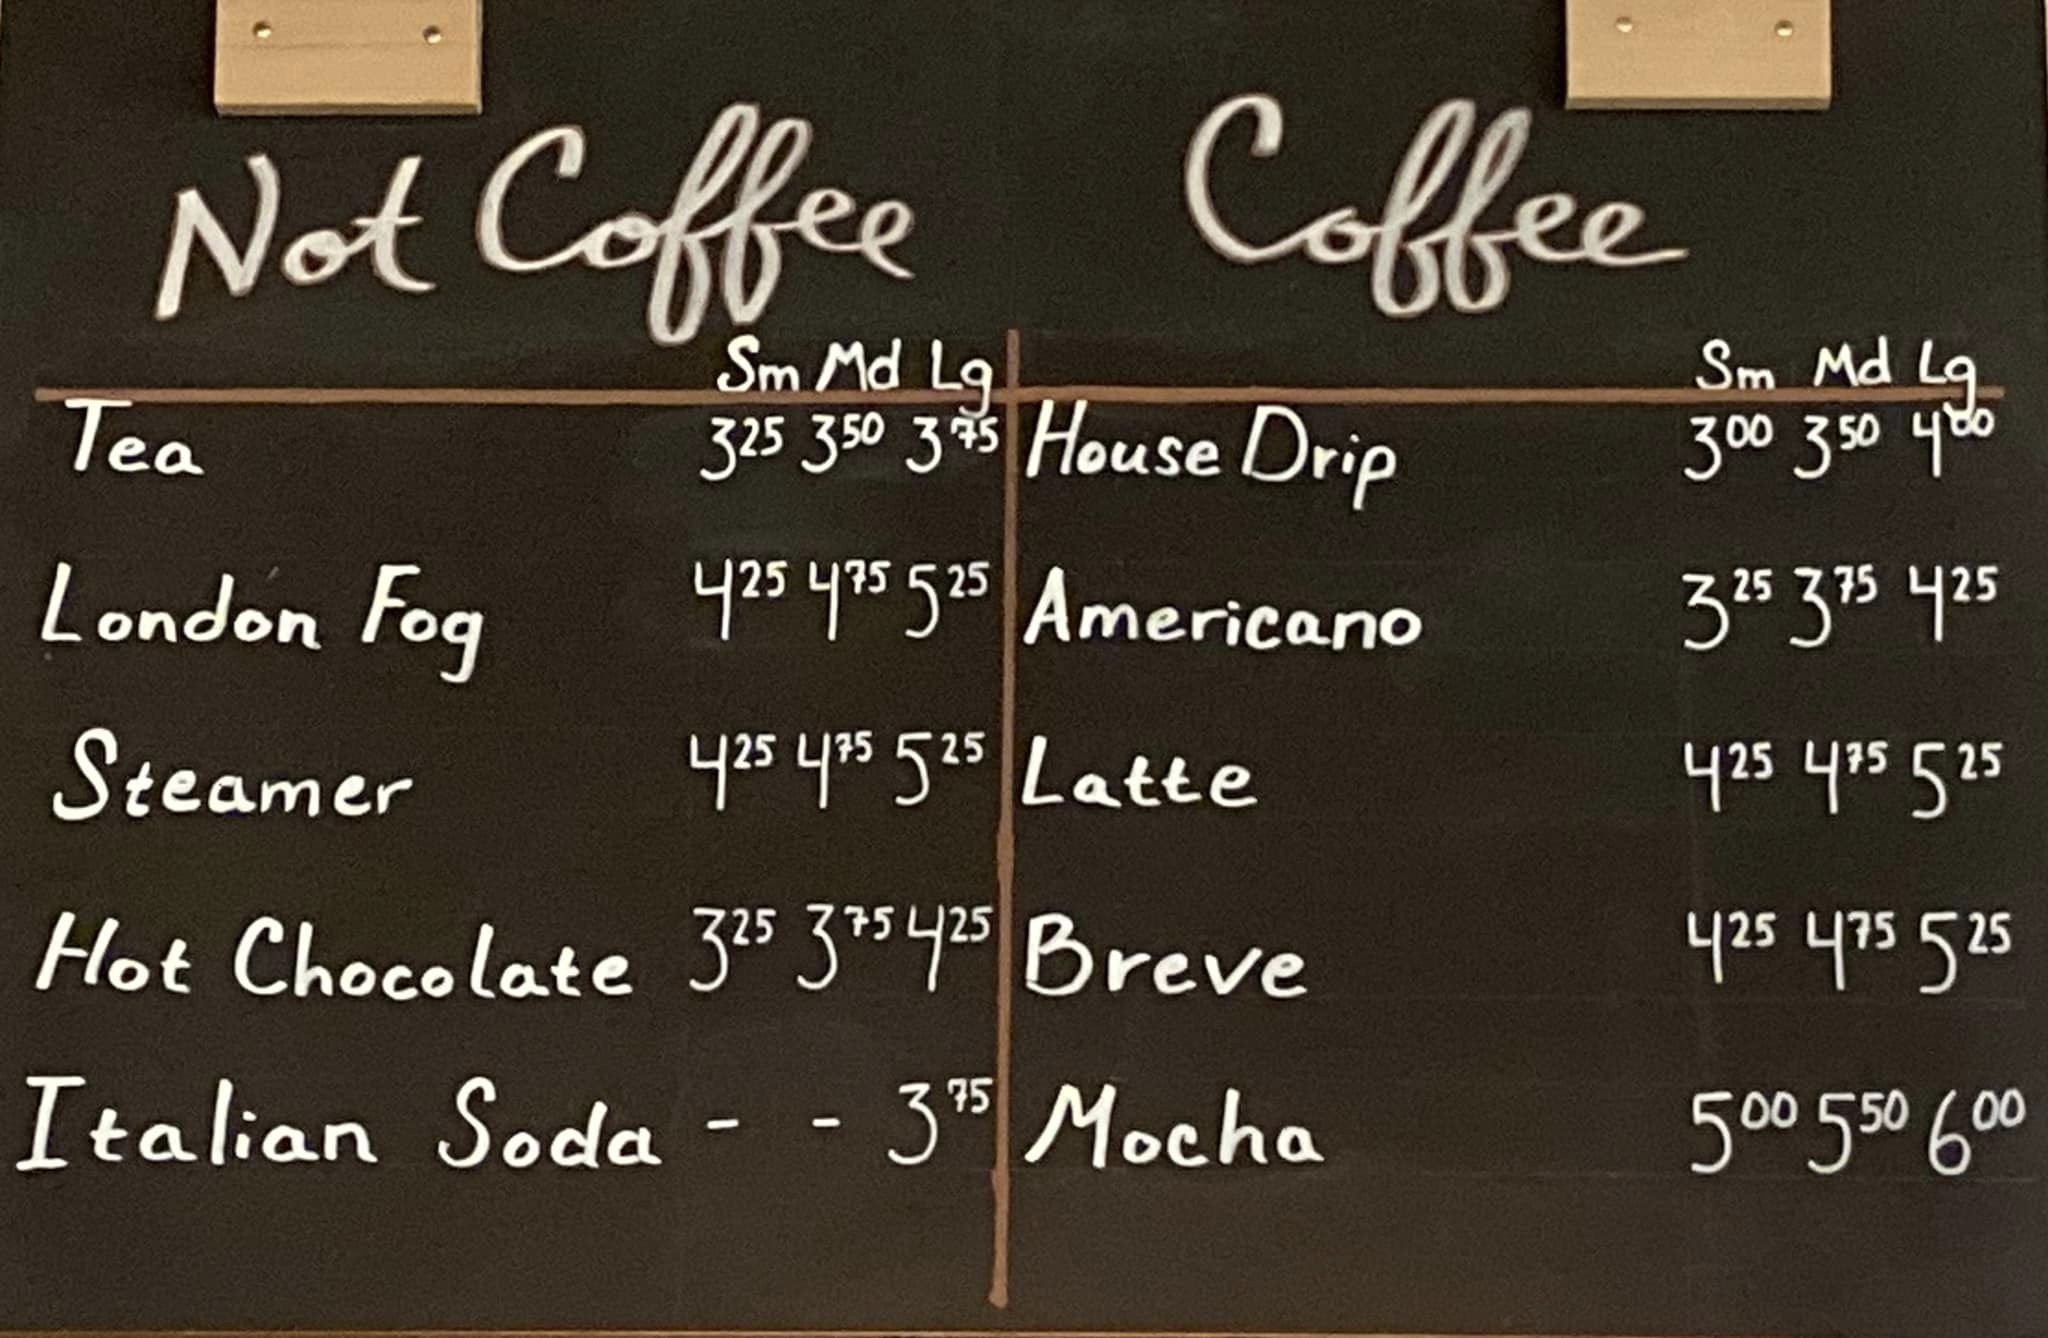 Not Coffee
Sm Md Lg
Tea 3 25 3 50 3 75
London Fog 4 25 4 75 5 25
Steamer 4 25 4 75 5 25
Hot Chocolate 3 25 3 75 4 25
Italian Soda - - 3 75
Coffee
Sm Md Lg
House Drip 3 00 3 50 4 00
Americano 3 25 3 75 4 25
Latte 4 25 4 75 5 25
Breve 4 25 4 75 5 25
Mocha 5 00 5 50 6 00